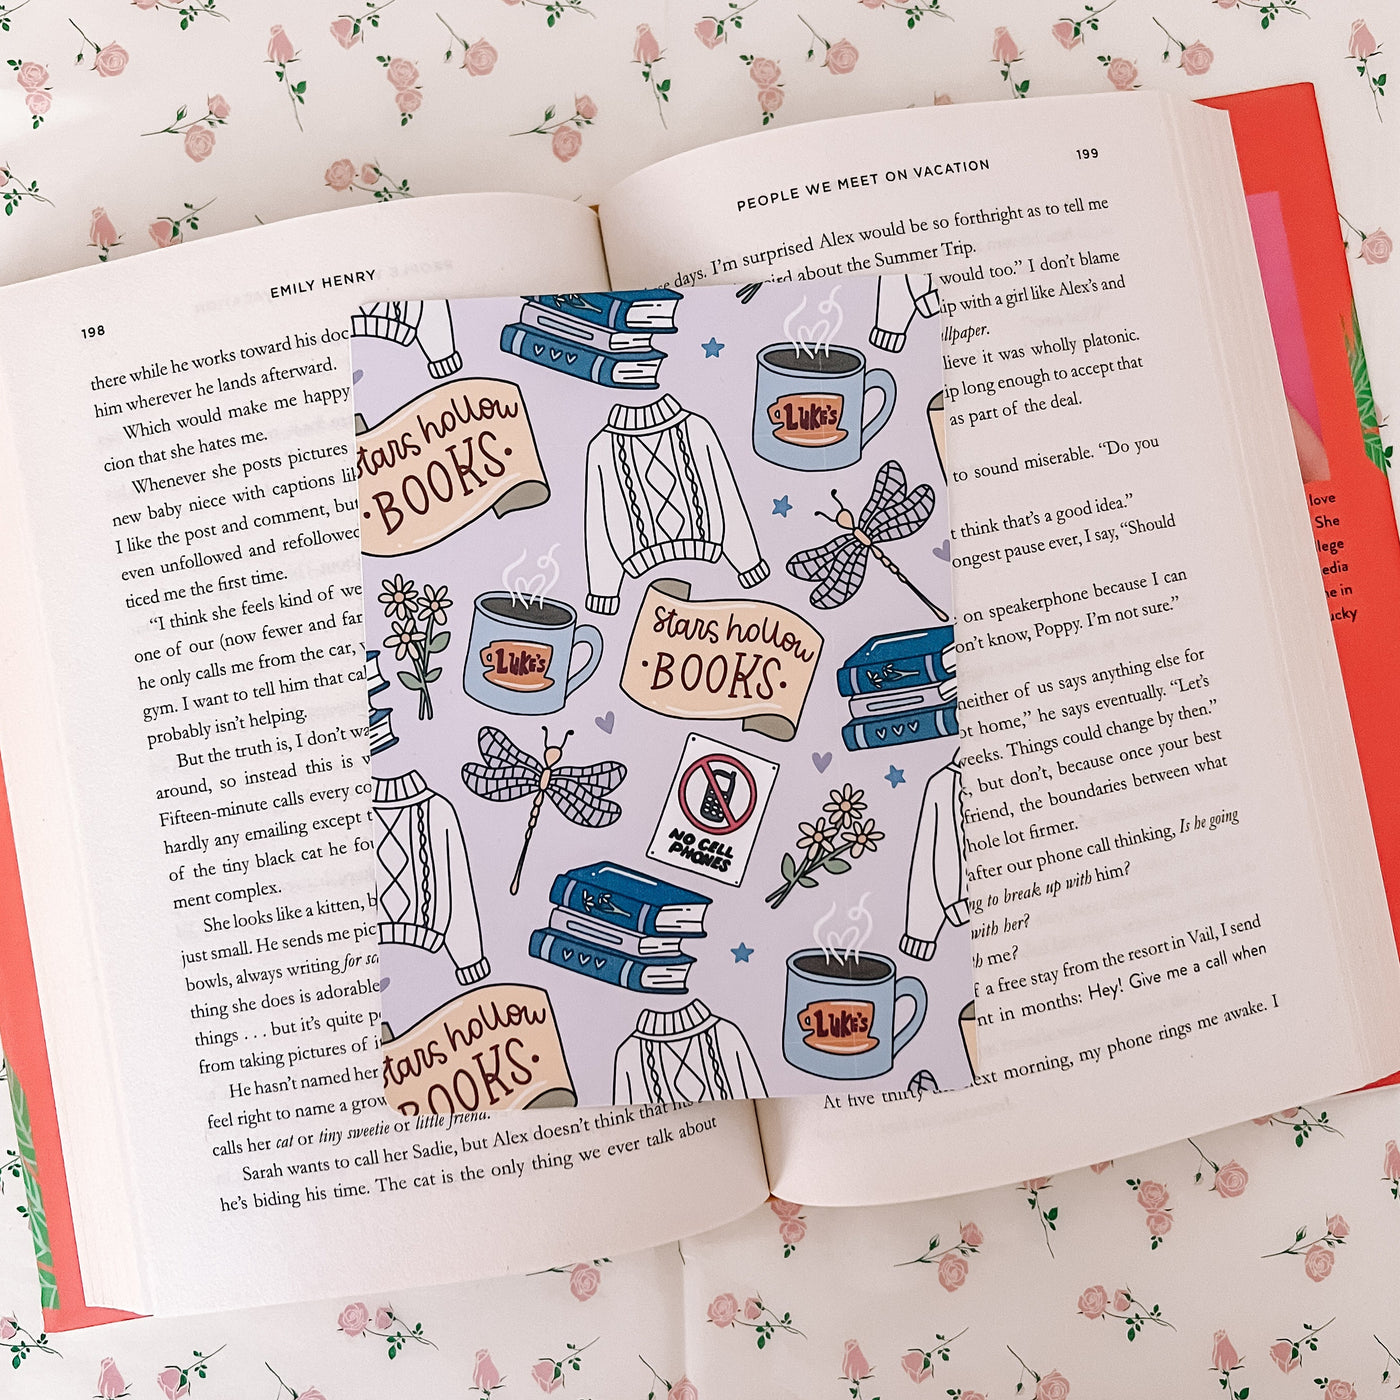 EMILY HENRY
198
there while he works toward his doc
him wherever he lands afterward.
Which would make me happy
cion that she hates me.
Whenever she posts pictures
new baby niece with captions
I like the post and comment, but
even unfollowed and refollowed
ticed me the first time.
“I think she feels kind of we
one of our (now fewer and far
he only calls me from the car,
gym. I want to tell him that
probably isn’t helping.
But the truth is, I don’t
around, so instead this is
Fifteen-minute calls every
hardly any emailing except
of the tiny black cat he
ment complex.
She looks like a kitten,
just small. He sends me
bowls, always writing for
thing she does is adorable
things . . . but it’s quite
from taking pictures of
He hasn’t named her
feel right to name a
calls her cat or tiny sweetie or little friend.
Sarah wants to call her Sadie, but Alex doesn’t think that
he’s biding his time. The cat is the only thing we ever talk about
PEOPLE WE MEET ON VACATION
199
days. I’m surprised Alex would be so forthright as to tell me
about the Summer Trip.
would too.” I don’t blame
with a girl like Alex’s and
it was wholly platonic.
long enough to accept that
as part of the deal.
to sound miserable. “Do you
think that’s a good idea.”
pause ever, I say, “Should
on speakerphone because I can
know, Poppy. I’m not sure.”
neither of us says anything else for
home,” he says eventually. “Let’s
weeks. Things could change by then.”
but don’t, because once your best
friend, the boundaries between what
whole lot firmer.
after our phone call thinking, Is he going
to break up with him?
with her?
me?
a free stay from the resort in Vail, I send
in months: Hey! Give me a call when
At five thirty
morning, my phone rings me awake. I
stars hollow
·BOOKS·
LUKE'S
LUKE'S
stars hollow
·BOOKS·
NO CELL
PHONES
stars hollow
BOOKS·
LUKE'S
love
She